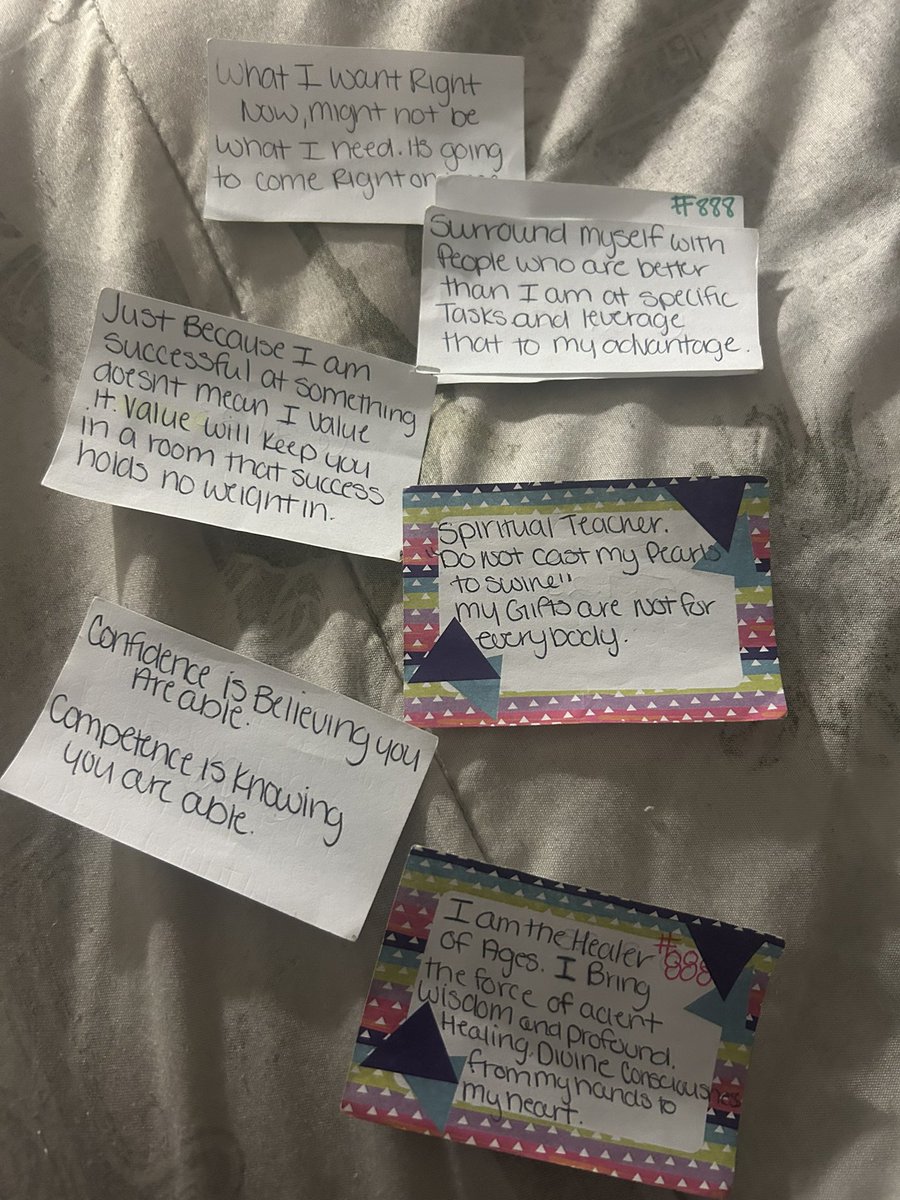 What I want Right
Now, might not be
what I need. Its going
to come Right on
#888
Surround myself with
People who are better
than I am at specific
Tasks and leverage
that to my advantage.
Just Because I am
successful at something
doesnt mean I value
it. Value will keep you
in a room that success
holds no weight in.
Spiritual Teacher.
"Do not cast my Pearls
to swine"
my Gifts are not for
everybody.
Confidence is Believing you
Are able.
Competence is knowing
you are able.
I am the Healer
of Ages. I Bring
the force of acient
wisdom and profound.
Healing. Divine Consciousnes
from my hands to
my heart.
#
888